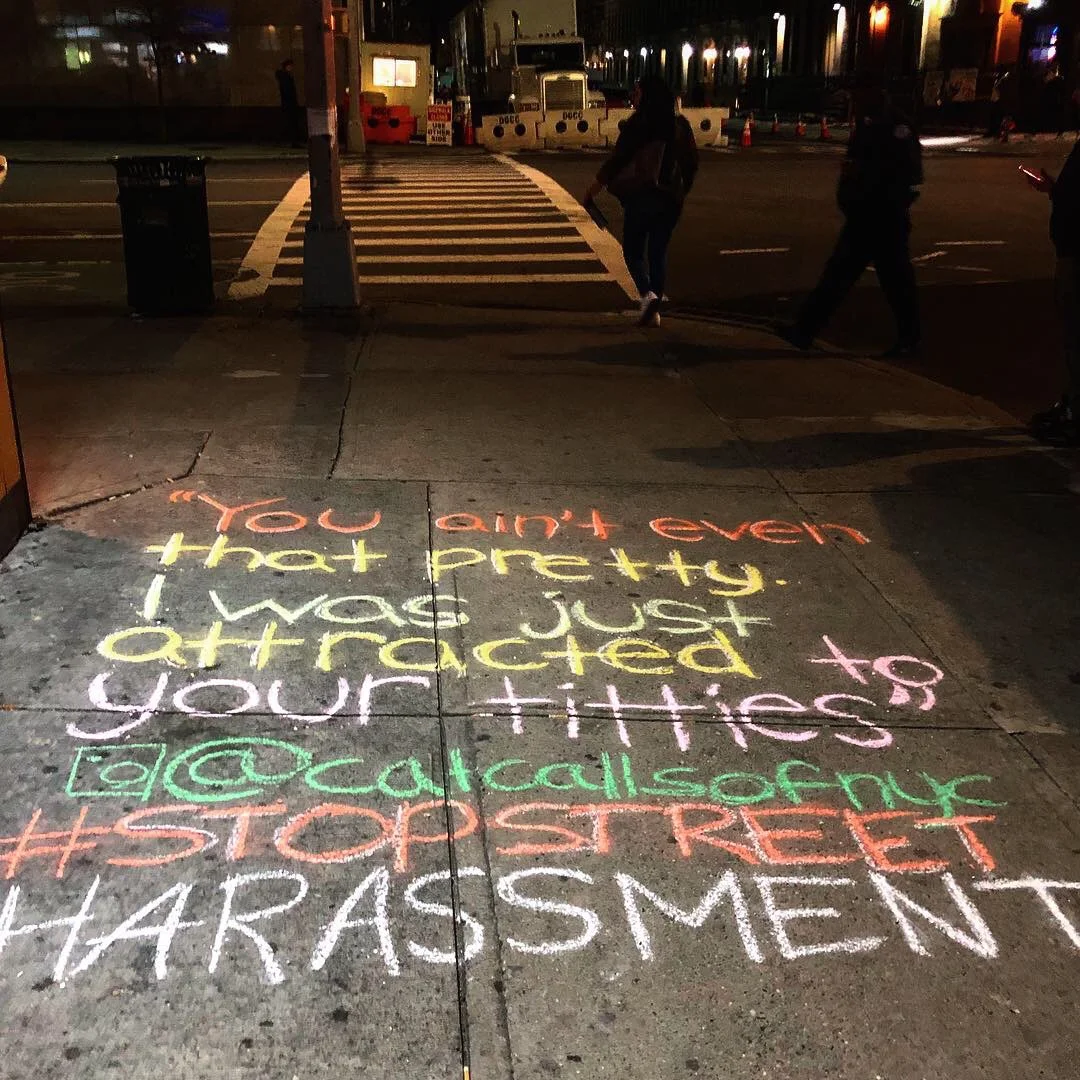 DGCC
DGCC
USE
OTHER
SIDE
"You ain't even
that pretty.
I was just
attracted to
your titties"
@catcallsofnyc
#STOPSTREET
HARASSMENT